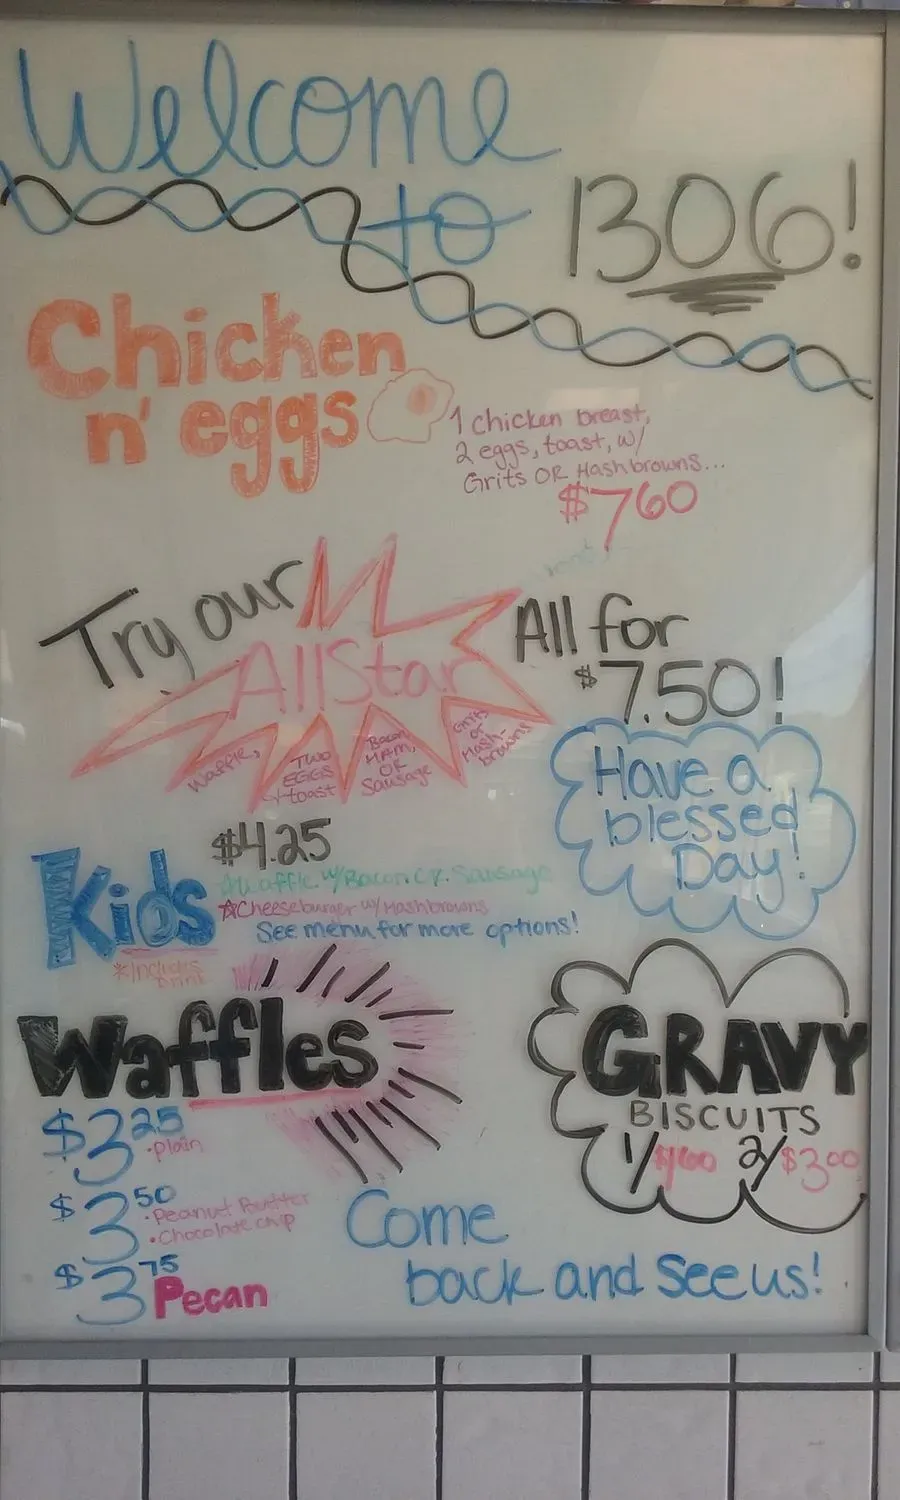 Welcome
to 1306!
Chicken
n' eggs
1 chicken breast,
2 eggs, toast, w/
Grits OR Hashbrowns...
$760
Try our
AllStar
All for
$7.50!
Waffle,
TWO
EGGS
toast
Bacon,
HAM,
OR
Sausage
Grits
or
Hash-
browns
Have a
blessed
Day!
Kids
$4.25
Waffle w/ Bacon OR Sausage
☆Cheeseburger w/ Hashbrowns
See menu for more options!
*Includes
Drink
Waffles
$3 25
·Plain
$3 50
·Peanut Butter
·Chocolate chip
$3 75
Pecan
GRAVY
BISCUITS
1/$1 60 2/$3 00
Come
back and see us!